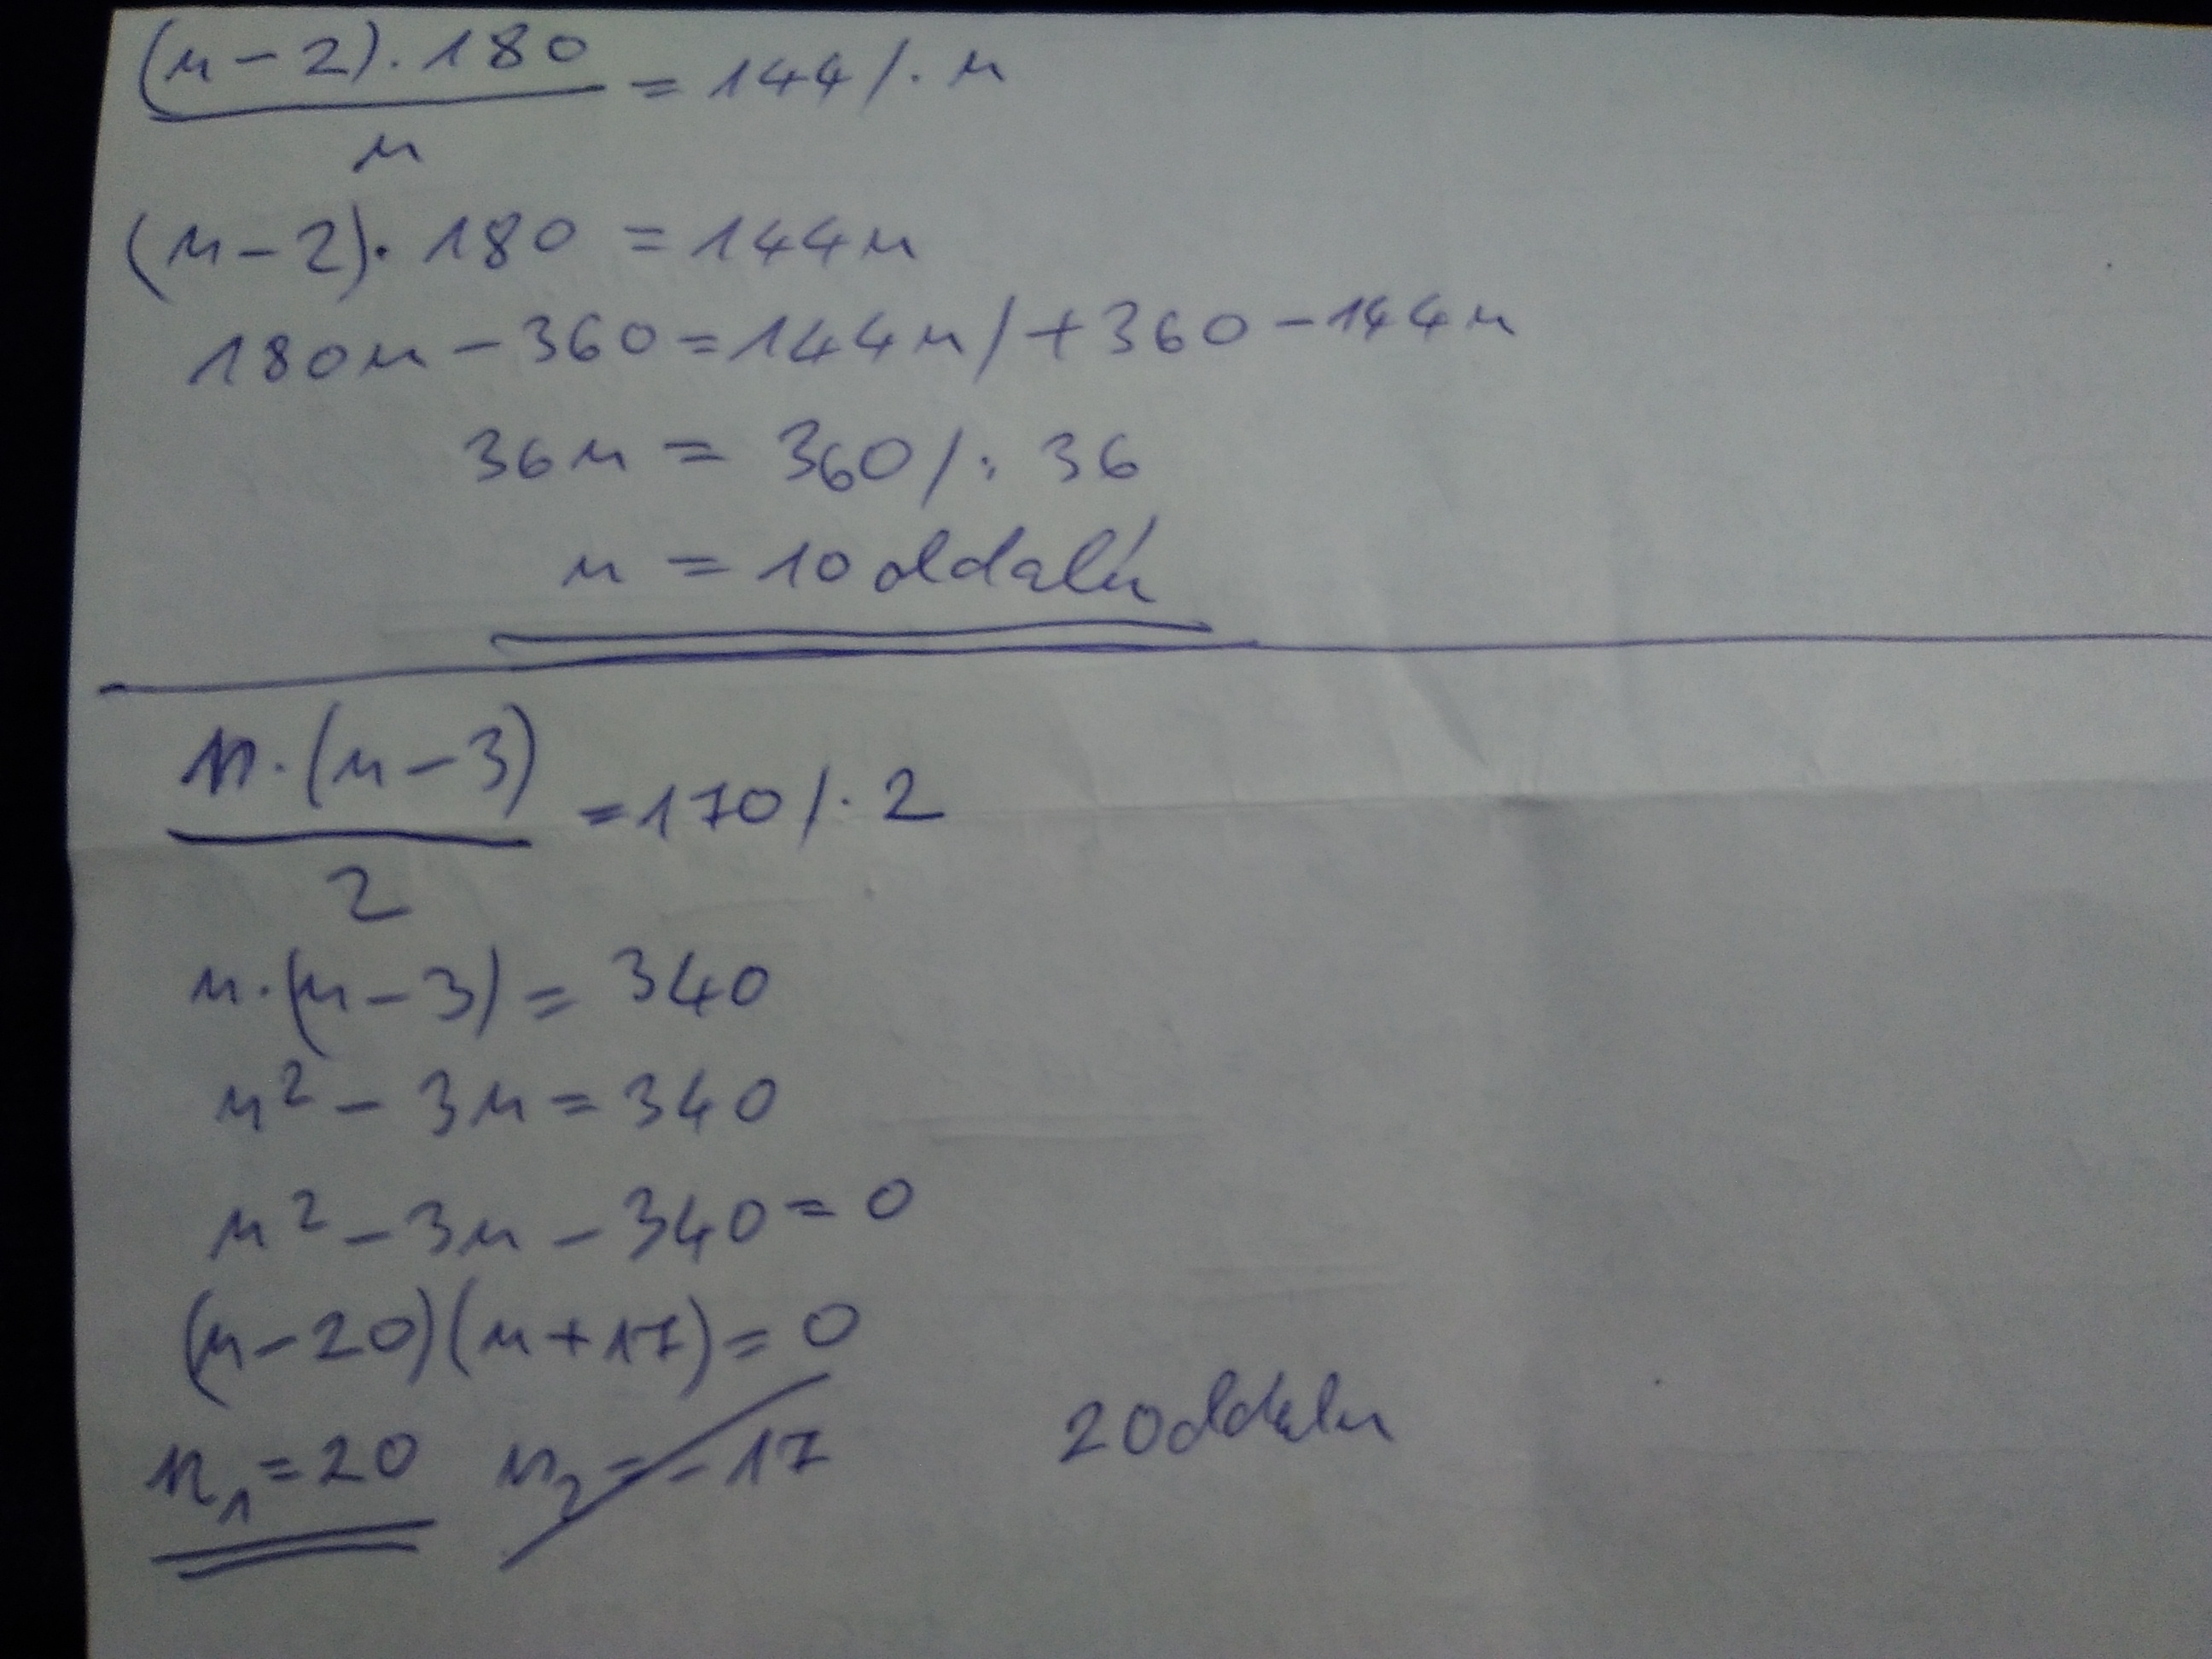 (n-2)·180 / n = 144 /·n
(n-2)·180 = 144n
180n-360=144n /+360-144n
36n = 360 /:36
n = 10 oldalú
n·(n-3) / 2 =170 /·2
n·(n-3) = 340
n²-3n=340
n²-3n-340=0
(n-20)(n+17)=0
n₁=20 n₂=-17 20 oldalu